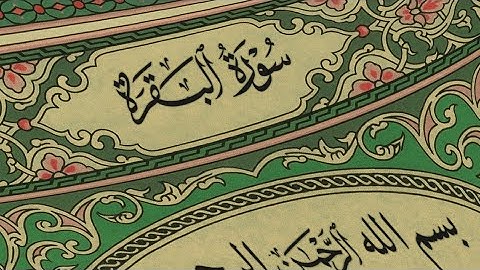 سُورَةُ ٱلْبَقَرَةِ
بسم الله ٱلرَّحْمَٰنِ